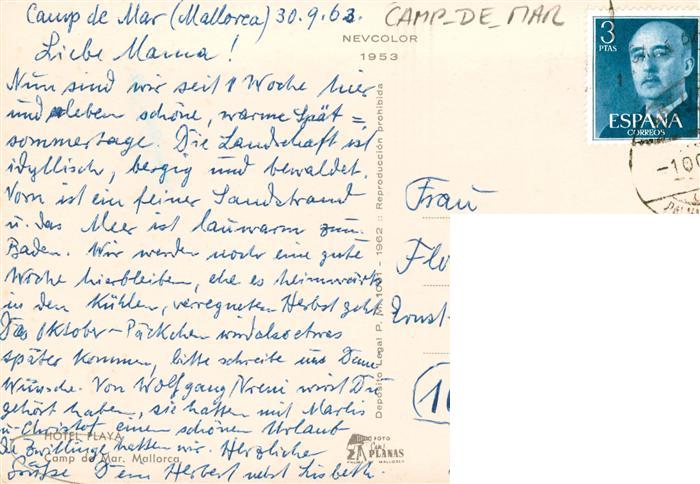 Camp de Mar (Mallorca) 30.9.63.
CAMP-DE-MAR
Liebe Mama!
Nun sind wir seit 1 Woche hier
und erleben schöne, warme Spät=
sommertage. Die Landschaft ist
idyllisch, bergig und bewaldet.
Vorn ist ein feiner Sandstrand
u. das Meer ist lauwarm zum
Baden. Wir werden noch eine gute
Woche hierbleiben, ehe es heimwärts
in den kühlen, verregneten Herbst geht
Das Oktober-Päckchen wird also etwas
später kommen, bitte schreibe uns Deine
Wünsche. Von Wolfgang Vreni wirst Du
gehört haben, sie hatten mit Marlis
u. Christof einen schönen Urlaub
Die Zwillinge hatten wir. Herzliche
Grüße Dein Herbert nebst Lisbeth.
HOTEL PLAYA
Camp de Mar. Mallorca
NEVCOLOR
1953
Depósito Legal P. M. 1001 - 1962 :: Reproducción prohibida
FOTO
PLANAS
PALMA MALLORCA
3
PTAS
ESPAÑA
CORREOS
Frau
Flo
Ernst-